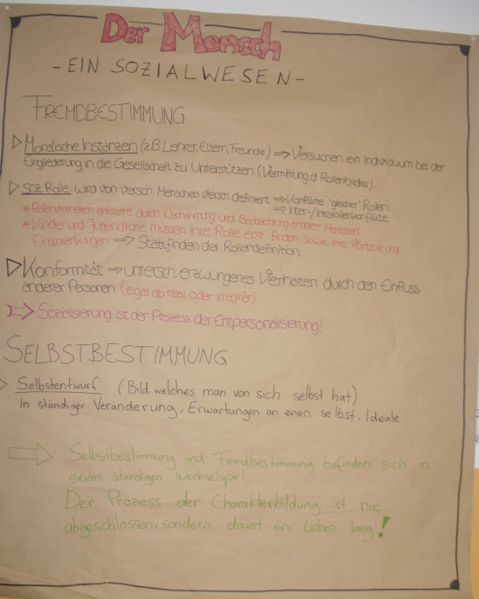 Der Mensch
- EIN SOZIALWESEN -
FREMDBESTIMMUNG
Moralische Instanzen (z.B Lehrer, Eltern, Freunde) ⇒ Versuchen ein Individuum bei der
Eingliederung in die Gesellschaft zu Unterstützen (Vermittlung d. Rollenbilder)
soz. Rolle wird von versch. Menschen versch. definiert ⇒ Konflikte "gleicher" Rollen
⇒ Inter-/Intrarollenkonflikte
* Rollenverhalten entsteht durch und Beobachtung anderer Menschen.
* Kinder und Jugendliche müssen ihre Rolle erst finden sowie ihre Vorteile und
Einschränkungen ⇒ Stattfinden der Rollendefinition
Konformität ⇒ untersch. erzwungenes Verhalten durch den Einfluss
anderer Personen (egal ob real oder)
⇒ Sozialisierung ist der Prozess der Entpersonalisierung!
SELBSTBESTIMMUNG
Selbstentwurf (Bild, welches man von sich selbst hat)
In ständiger Veränderung, Erwartungen an einen selbst, Ideale
Selbstbestimmung und Fremdbestimmung befinden sich in
einem ständigen Wechselspiel.
Der Prozess der Charakterbildung ist nie
abgeschlossen, sondern dauert ein Leben lang!